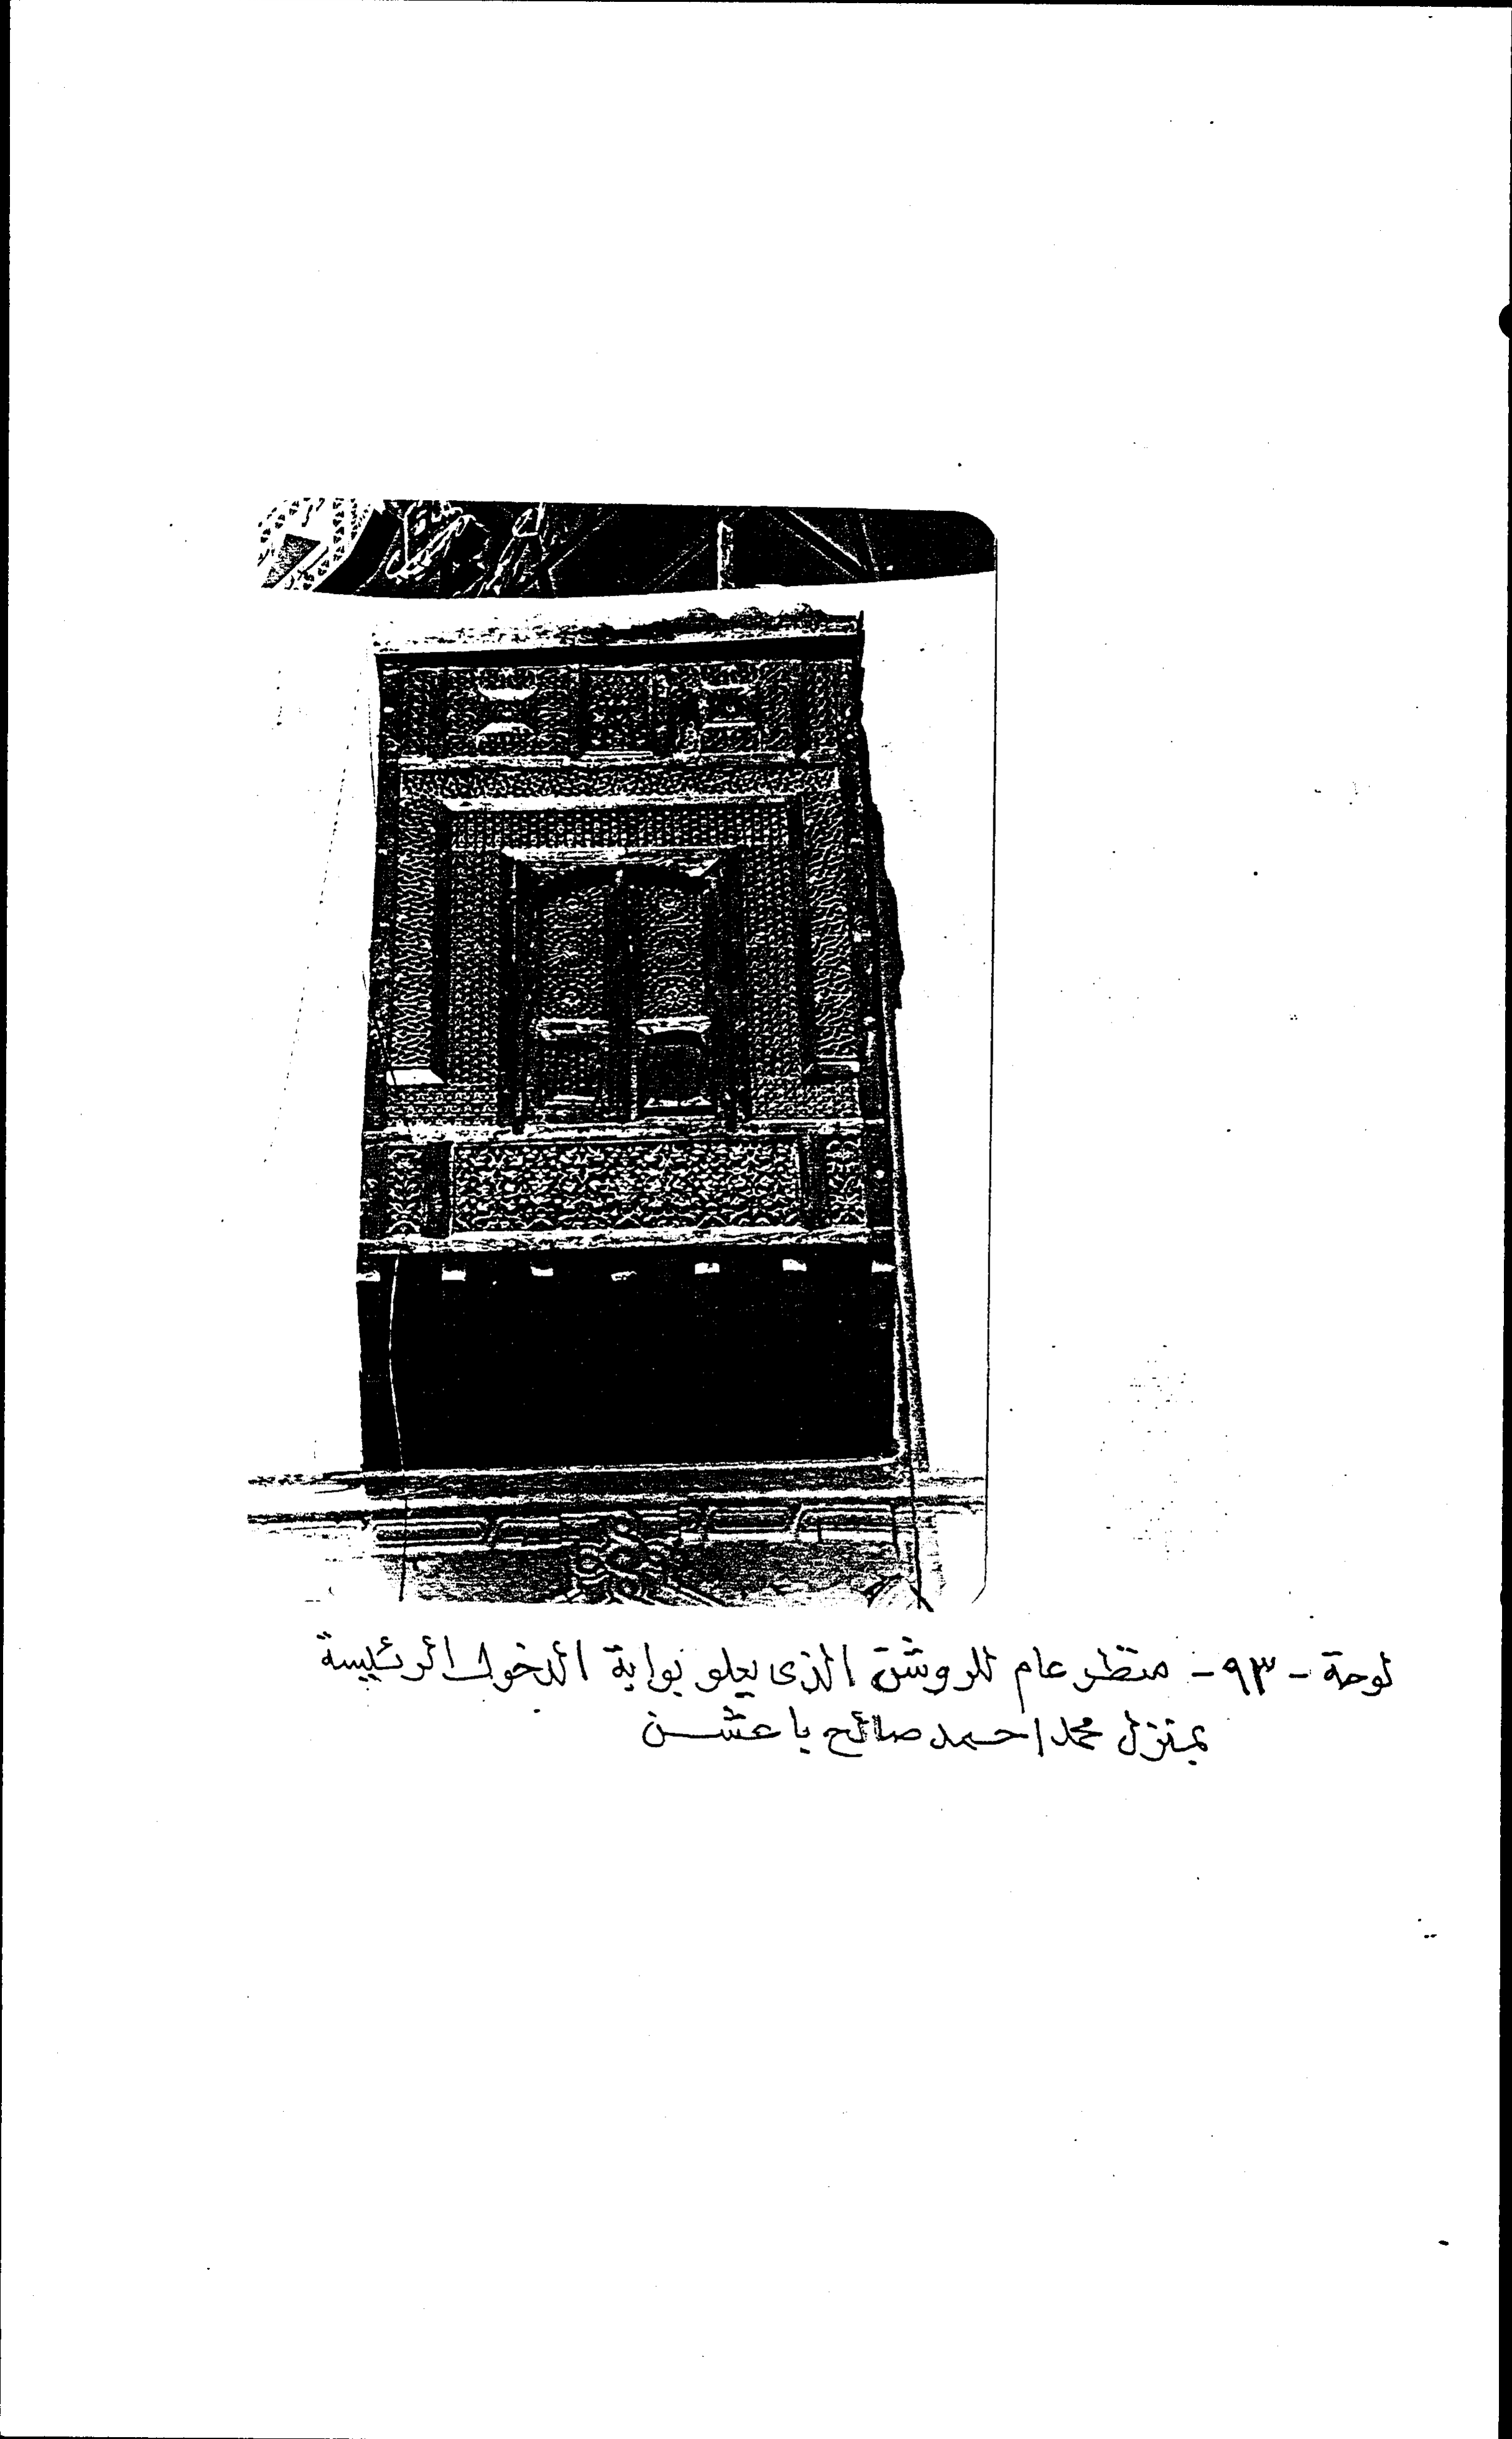 لوحة - ٩٣ - منظر عام للروشن الذى يعلو بوابة الدخول الرئيسة
بمنزل محمد احمد صالح باعشن